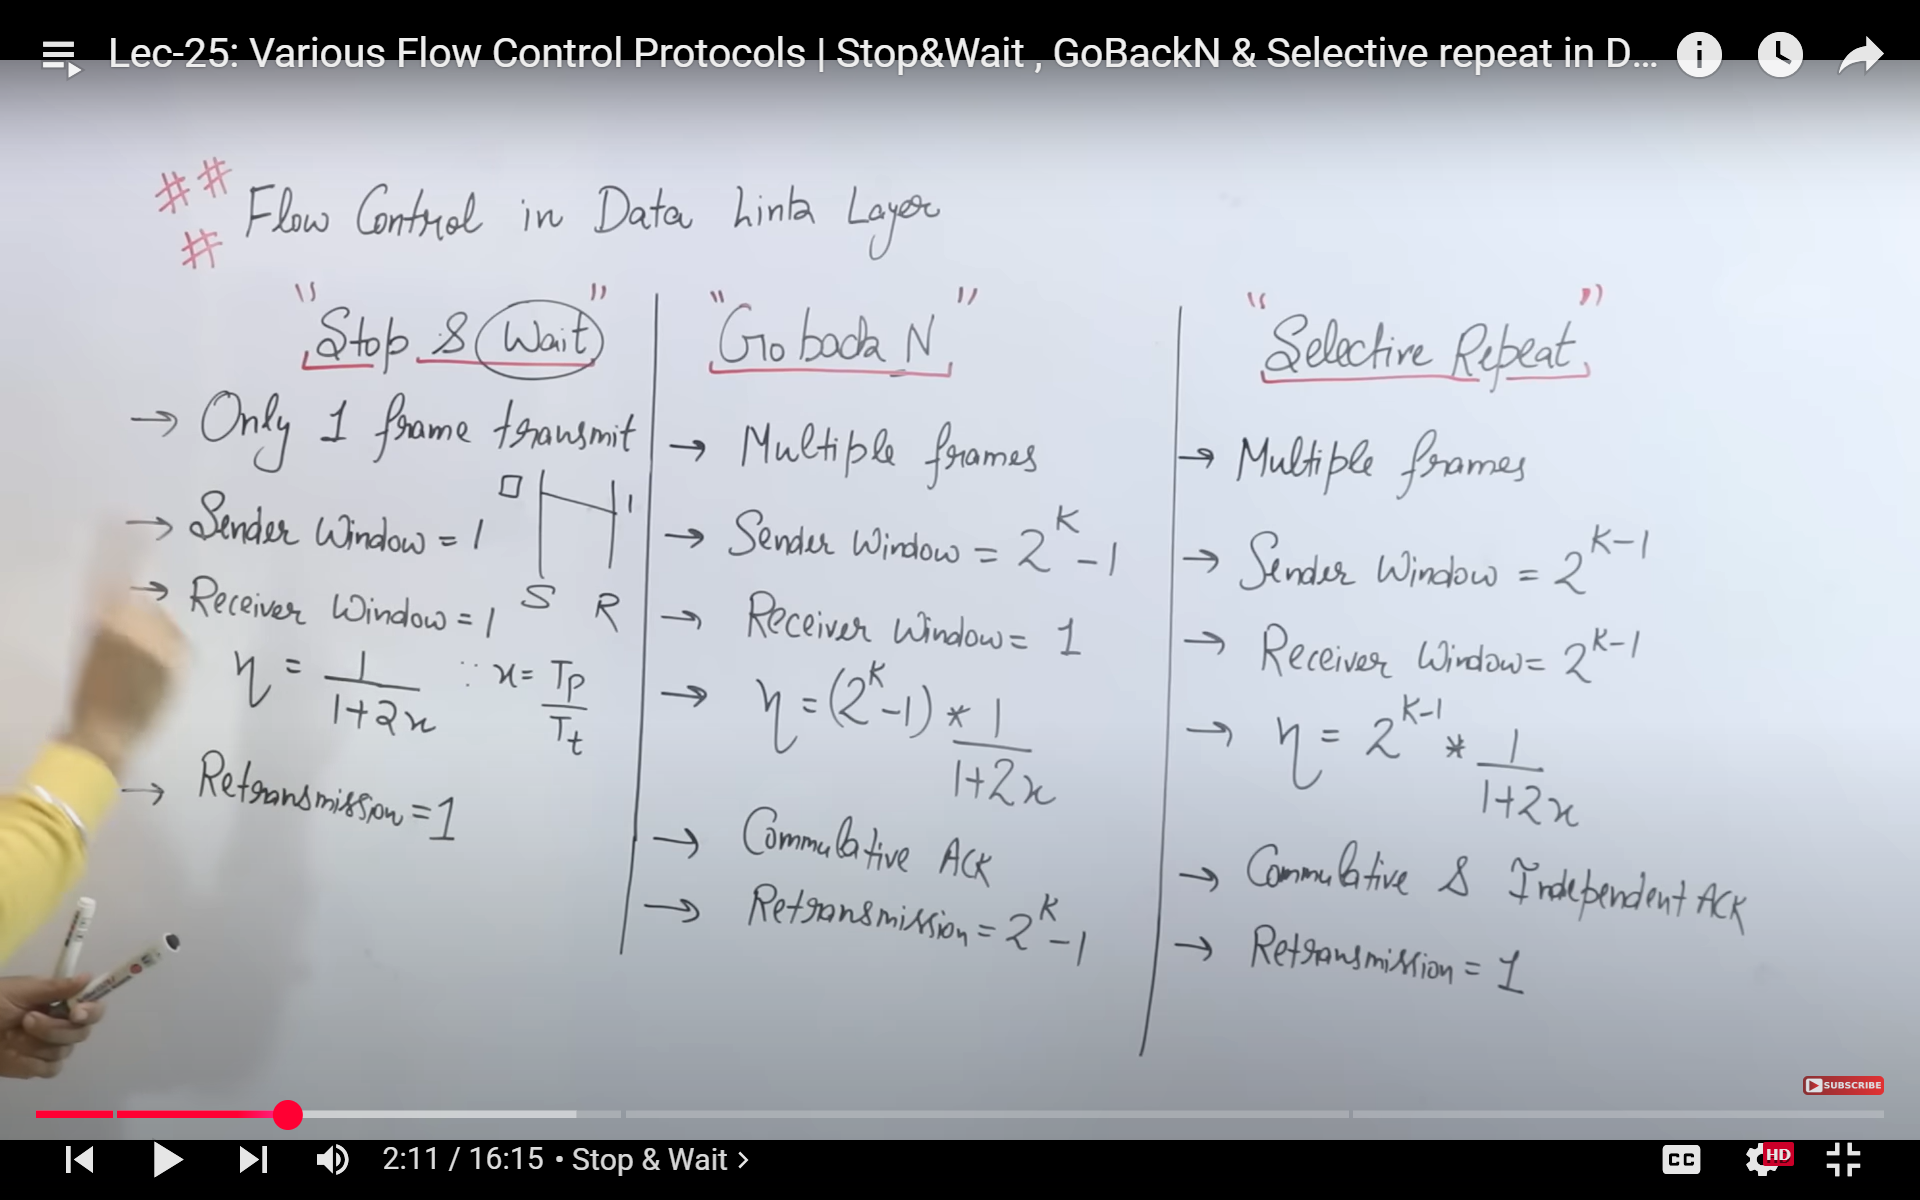 Lec-25: Various Flow Control Protocols | Stop&Wait , GoBackN & Selective repeat in D...
## 
#
Flow Control in Data Link Layer
"Stop & Wait"
→ Only 1 frame transmit
→ Sender Window = 1
→ Receiver Window = 1
S R
1
η = 1/(1+2x) ∵ x = Tp/Tt
→ Retransmission = 1
"Go back N"
→ Multiple frames
→ Sender Window = 2^K - 1
→ Receiver Window = 1
→ η = (2^K - 1) * 1/(1+2x)
→ Commulative ACK
→ Retransmission = 2^K - 1
"Selective Repeat"
→ Multiple frames
→ Sender Window = 2^(K-1)
→ Receiver Window = 2^(K-1)
→ η = 2^(K-1) * 1/(1+2x)
→ Commulative & Independent ACK
→ Retransmission = 1
SUBSCRIBE
2:11 / 16:15 • Stop & Wait >
CC
HD